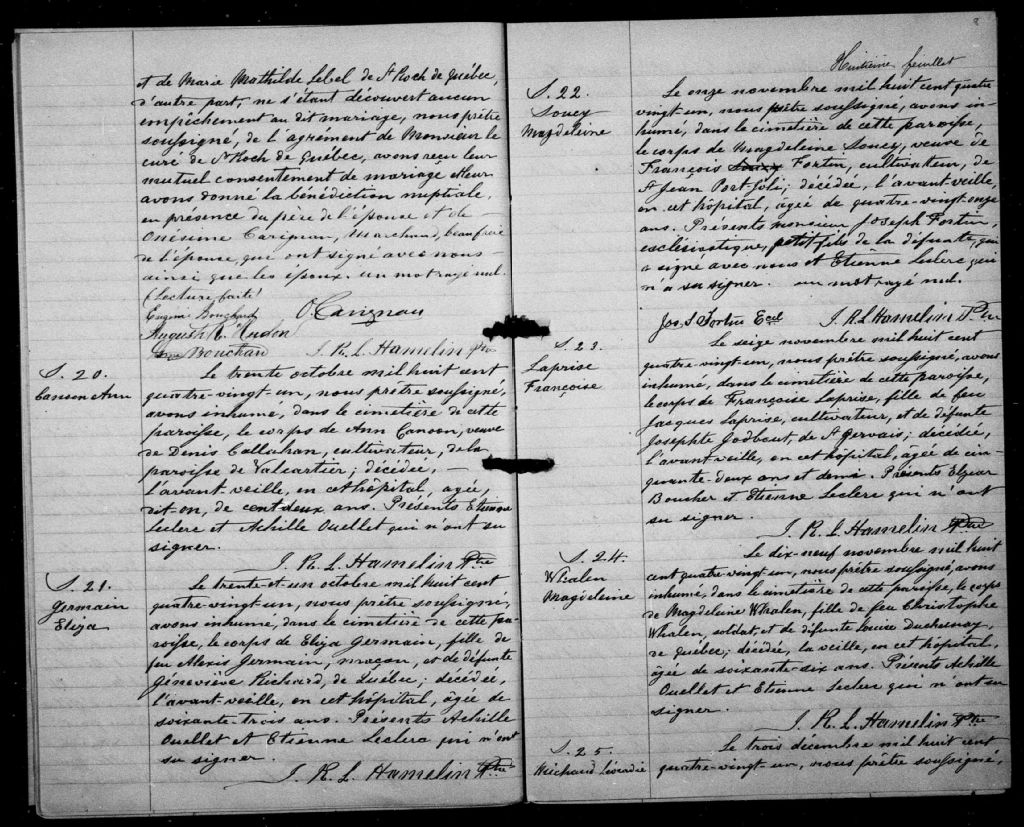 et de Marie Mathilde Lebel de St Roch de Québec,
d'autre part, ne s'étant découvert aucun
empêchement au dit mariage, nous prêtre
soussigné, de l'agrément de Monsieur le
curé de St Roch de Québec, avons reçu leur
mutuel consentement de mariage et leur
avons donné la bénédiction nuptiale
en présence du père de l'épouse et de
Onésime Carignan, Marchand, beau frère
de l'épouse, qui ont signé avec nous
ainsi que les époux. un mot rayé nul.
(Lecture faite)
Eugène Bouchard O. Carignan
August R.
Bouchard J. R. L. Hamelin Ptre
S. 20.
Canson Ann
Le trente octobre mil huit cent
quatre-vingt-un, nous prêtre soussigné,
avons inhumé, dans le cimetière de cette
paroisse, le corps de Ann Canson, veuve
de Denis Callahan, cultivateur, de la
paroisse de Valcartier; décédée,
l'avant-veille, en cet hôpital, agée,
dit-on, de cent deux ans. Présents Etienne
Leclerc et Achille Ouellet qui n'ont su
signer.
J. R. L. Hamelin Ptre
S. 21.
Germain
Eliza
Le trente-et-un octobre mil huit cent
quatre-vingt-un, nous prêtre soussigné,
avons inhumé, dans le cimetière de cette pa-
roisse, le corps de Eliza Germain, fille de
feu Alexis Germain, maçon, et de défunte
Géneviève Richard, de Québec; décédée,
l'avant-veille, en cet hôpital, âgée de
soixante-trois ans. Présents Achille
Ouellet et Etienne Leclerc qui n'ont
su signer.
J. R. L. Hamelin Ptre
8
Huitième feuillet
S. 22.
Soucy
Magdeleine
Le onze novembre mil huit cent quatre
vingt-un, nous prêtre soussigné, avons in-
humé, dans le cimetière de cette paroisse,
le corps de Magdeleine Soucy, veuve de
François Soucy Fortin, cultivateur, de
St Jean Port-Joli; décédée, l'avant-veille,
en cet hôpital, âgée de quatre-vingt-onze
ans. Présents monsieur Joseph Fortin,
ecclésiastique, petit fils de la défunte, qui
a signé avec nous et Etienne Leclerc qui
n'a su signer. un mot rayé nul.
Jos. S. Fortin Eccl J. R. L. Hamelin Ptre
S. 23.
Laprise
Françoise
Le seize novembre mil huit cent
quatre-vingt-un, nous prêtre soussigné, avons
inhumé, dans le cimetière de cette paroisse,
le corps de Françoise Laprise, fille de feu
Jacques Laprise, cultivateur, et de défunte
Josephte Godbout, de St Gervais; décédée,
l'avant-veille, en cet hôpital, agée de cin-
quante-deux ans et demi. Présents Elzéar
Boucher et Etienne Leclerc qui n'ont
su signer.
J. R. L. Hamelin Ptre
S. 24.
Whalen
Magdeleine
Le dix-neuf novembre mil huit
cent quatre-vingt-un, nous prêtre soussigné, avons
inhumé, dans le cimetière de cette paroisse, le corps
de Magdeleine Whalen, fille de feu Christophe
Whalen, soldat, et de défunte Louise Duchesnay,
de Québec; décédée, la veille, en cet hôpital,
âgée de soixante-six ans. Présents Achille
Ouellet et Etienne Leclerc qui n'ont su
signer.
J. R. L. Hamelin Ptre
S. 25.
Michaud Léocadie
Le trois décembre mil huit cent
quatre-vingt-un, nous prêtre soussigné,